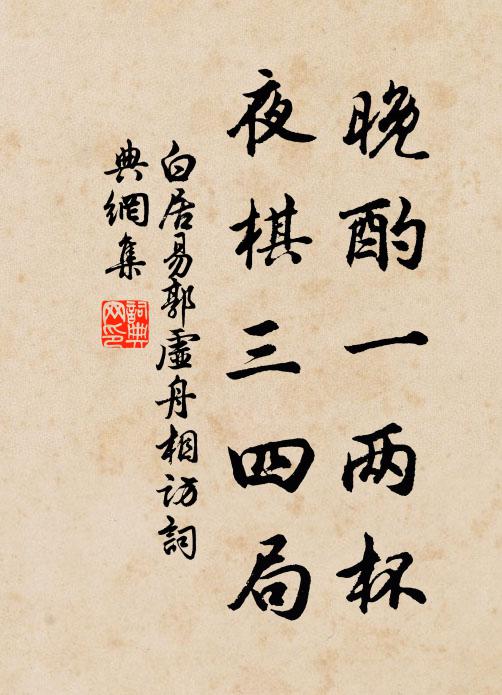 晚酌一两杯
夜棋三四局
白居易郭虛舟相访詞
典網集
詞典
网印